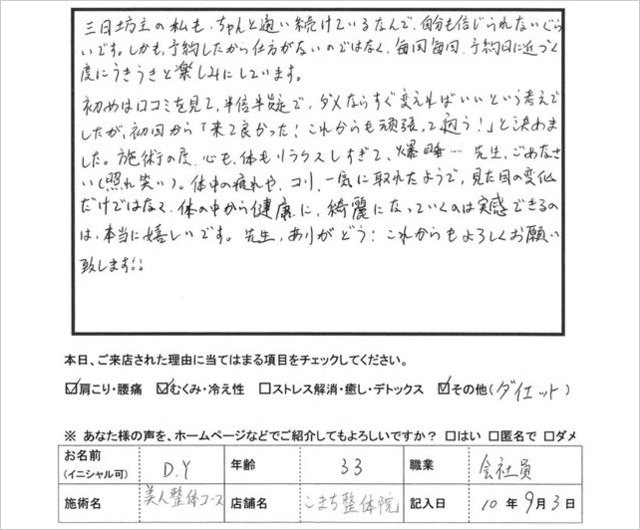 三日坊主の私も、ちゃんと通い続けているなんて、自分も信じられないぐら
いです。しかも、予約したから仕方がないのではなく、毎回毎回、予約日に近づく
度にうきうきと楽しみにしています。
初めは口コミを見て、半信半疑で、ダメならすぐ変えればいいという考えで
したが、初回から「来て良かった！これからも頑張って通う！」と決めま
した。施術の度、心も、体もリラクスしすぎて、爆睡… 先生、ごめなさ
い(照れ笑い)。体中の疲れや、コリ、一気に取れたようで、見た目の変化
だけではなく、体の中から健康に、綺麗になっていくのは実感できるの
は、本当に嬉しいです。先生、ありがどう！これからもよろしくお願い
致します!!
本日、ご来店された理由に当てはまる項目をチェックしてください。
☑肩こり・腰痛 ☑むくみ・冷え性 □ストレス解消・癒し・デトックス ☑その他(ダイエット)
※ あなた様の声を、ホームページなどでご紹介してもよろしいですか？ □はい □匿名で □ダメ
お名前 (イニシャル可) D.Y 年齢 33 職業 会社員
施術名 美人整体コース 店舗名 こまち整体院 記入日 10 年 9月 3 日